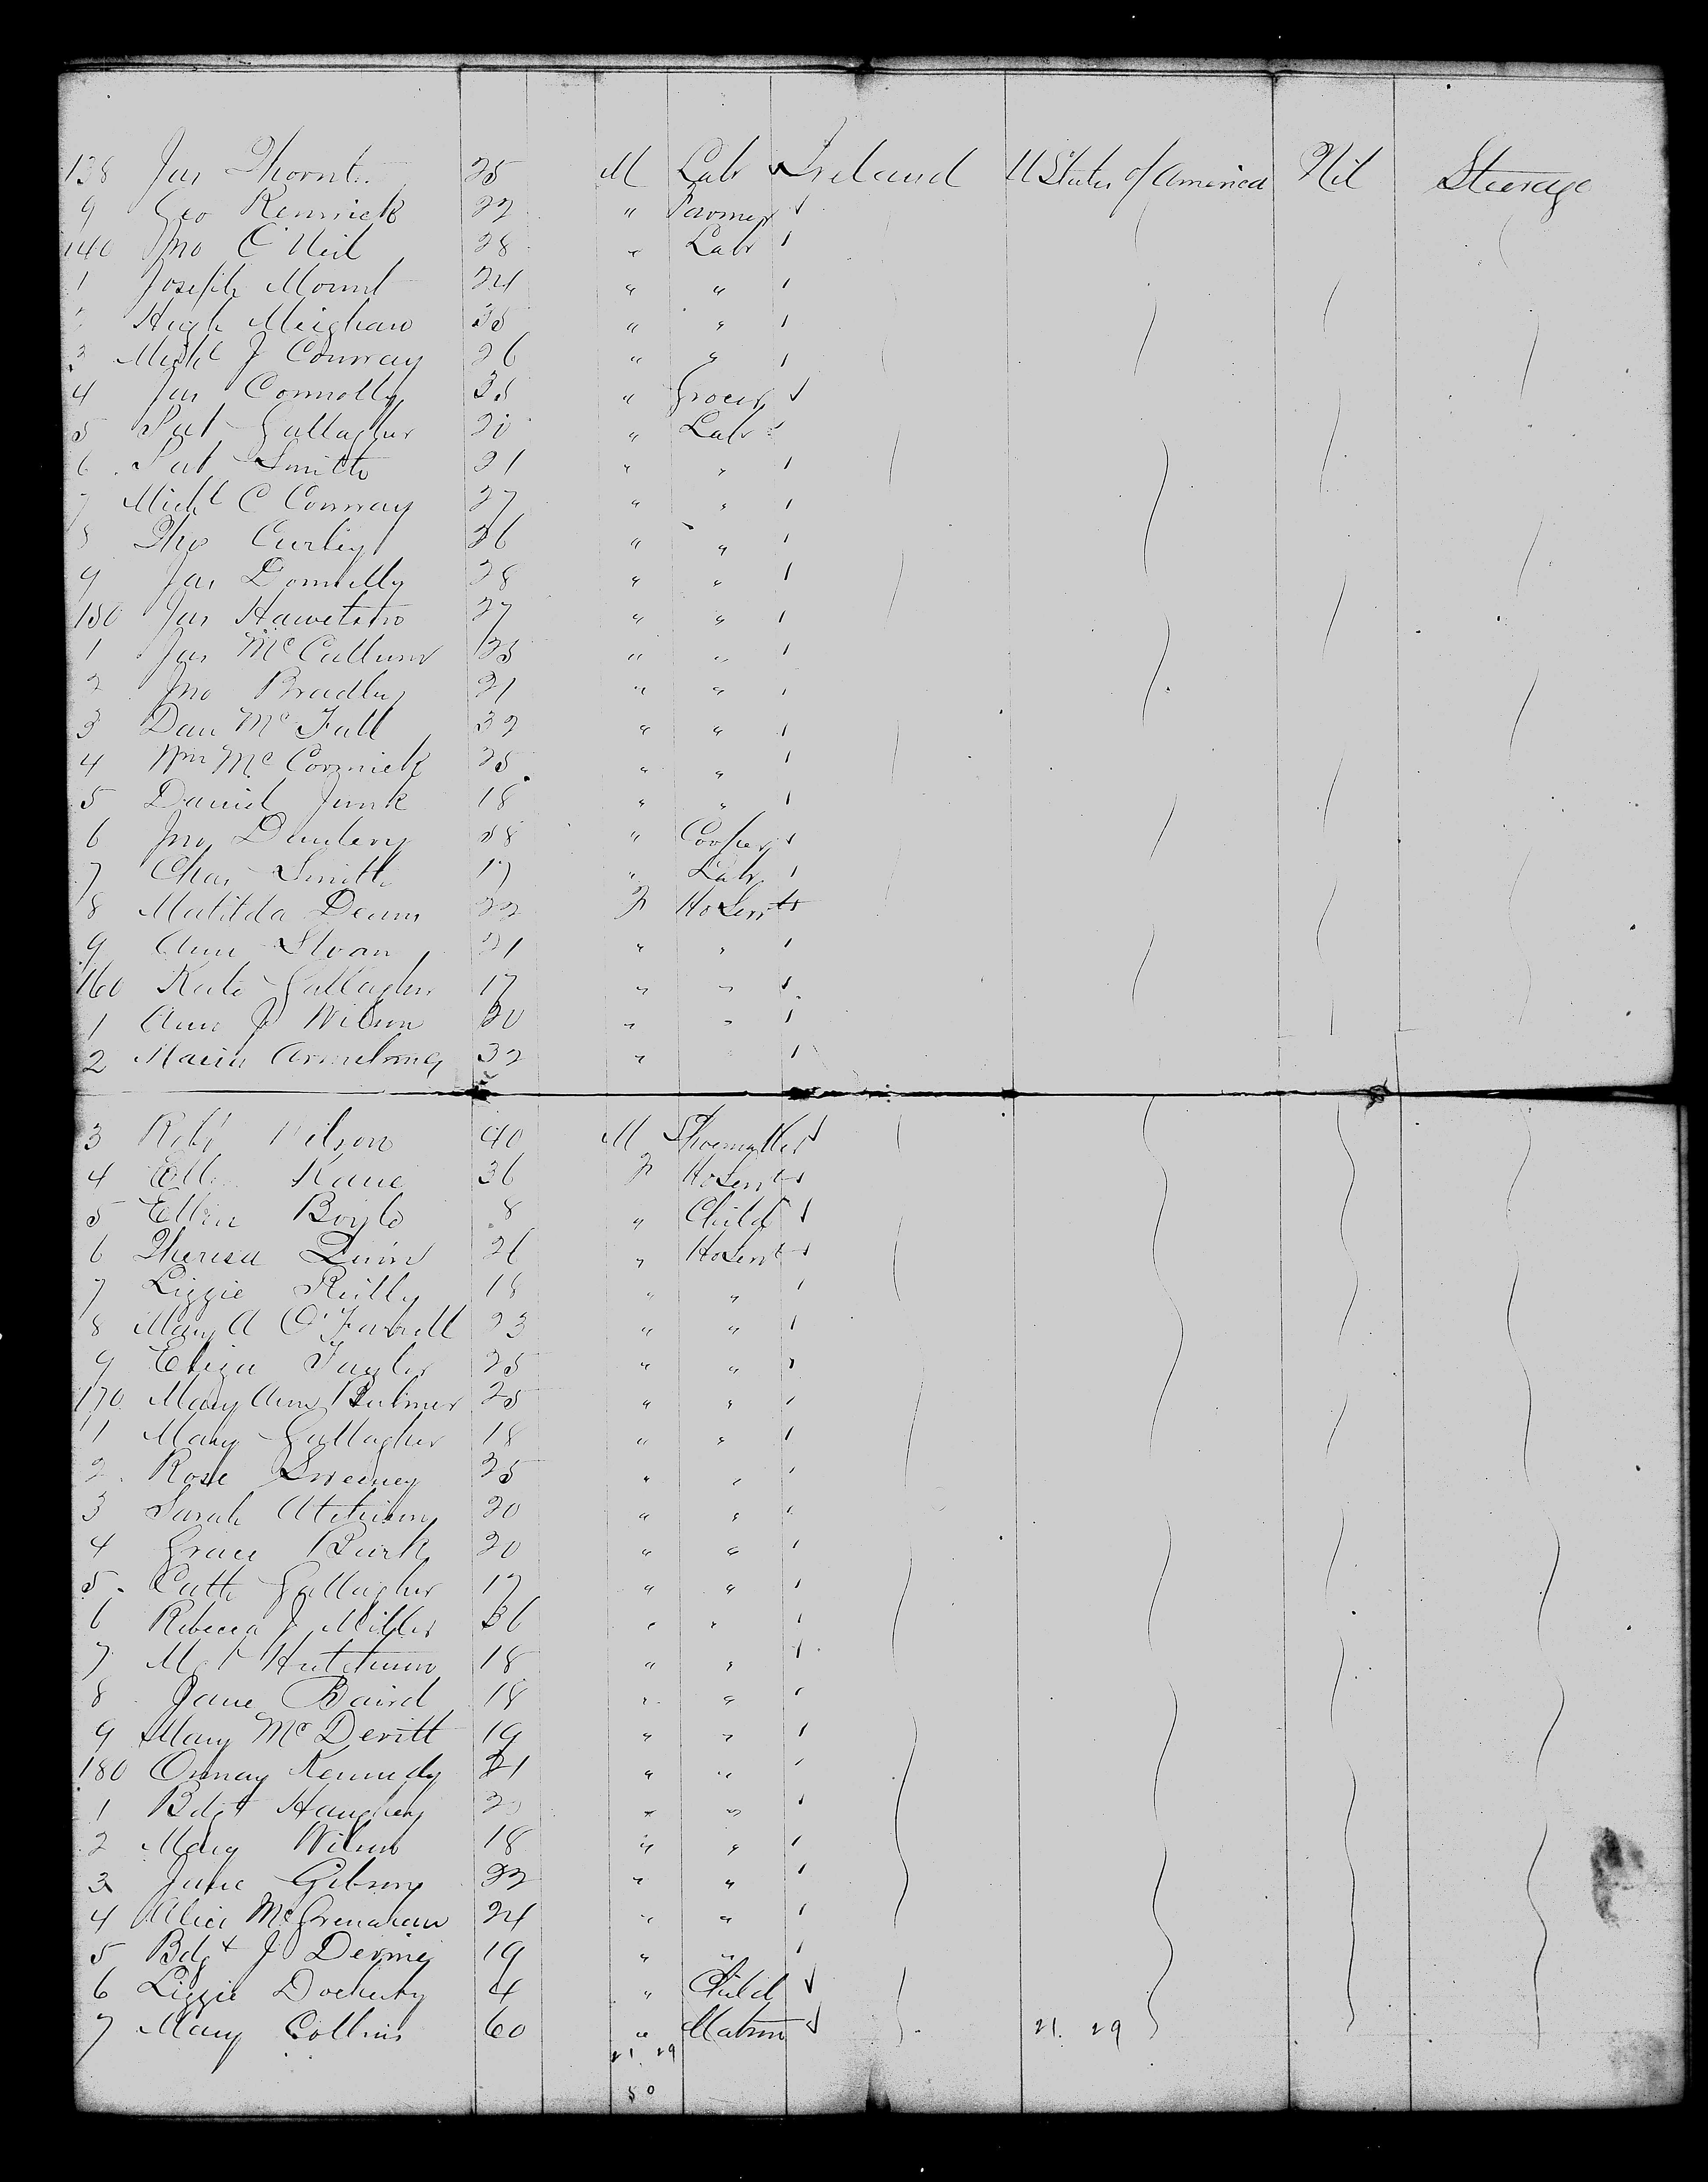 138 Jas Thornt 25 M Labr Ireland U States of America Nil Steerage
9 Geo Rennick 22 " Farmer
140 Jno O'Neil 28 " Labr
1 Joseph Mount 24 " "
2 Hugh Meighan 35 " "
3 Michl J Conway 26 " "
4 Jas Connolly 35 " Grocer
5 Pat Gallagher 20 " Labr
6 Pat Smith 21 " "
7 Michl C Conway 27 " "
8 Thos Curley 26 " "
9 Jas Donnelly 28 " "
150 Jas 27 " "
1 Jas McCallum 25 " "
2 Jno Bradley 21 " "
3 Dan McFall 32 " "
4 Wm McCormick 25 " "
5 Daniel Junk 18 " "
6 Jno 38 " Cooper
7 Chas Smith 17 " Labr
8 Matilda Deans 22 F Ho Servt
9 Ann Sloan 21 " "
160 Kate Gallagher 17 " "
1 Ann J Wilson 20 " "
2 Maria Armstrong 32 "
3 Robt Wilson 40 M Shoemaker
4 Kane 36 F Ho Servt
5 Ellen Boyle 8 " Child
6 Theresa Quinn 26 " Ho Servt
7 Lizzie Reilly 18 " "
8 Mary A O'Farrell 23 " "
9 Eliza Taylor 25 " "
170 Mary Ann 25 " "
1 Mary Gallagher 18 " "
2 Rose Sweeney 25 " "
3 Sarah 20 " "
4 Grace Burk 20 " "
5 Cath Gallagher 17 " "
6 Rebecca J Miller 36 " "
7 18 " "
8 Jane Baird 18 " "
9 Mary McDevitt 19 " "
180 Kennedy 21 " "
1 Bdgt Haughey " "
2 Mary Wilson 18 " "
3 Jane Gibson 22 " "
4 Alice McGrenahan 24 " "
5 Bdgt J 19 " "
6 Lizzie Docherty 4 " Child
7 Mary Collins 60 " Matron 21. 29
21. 29
50